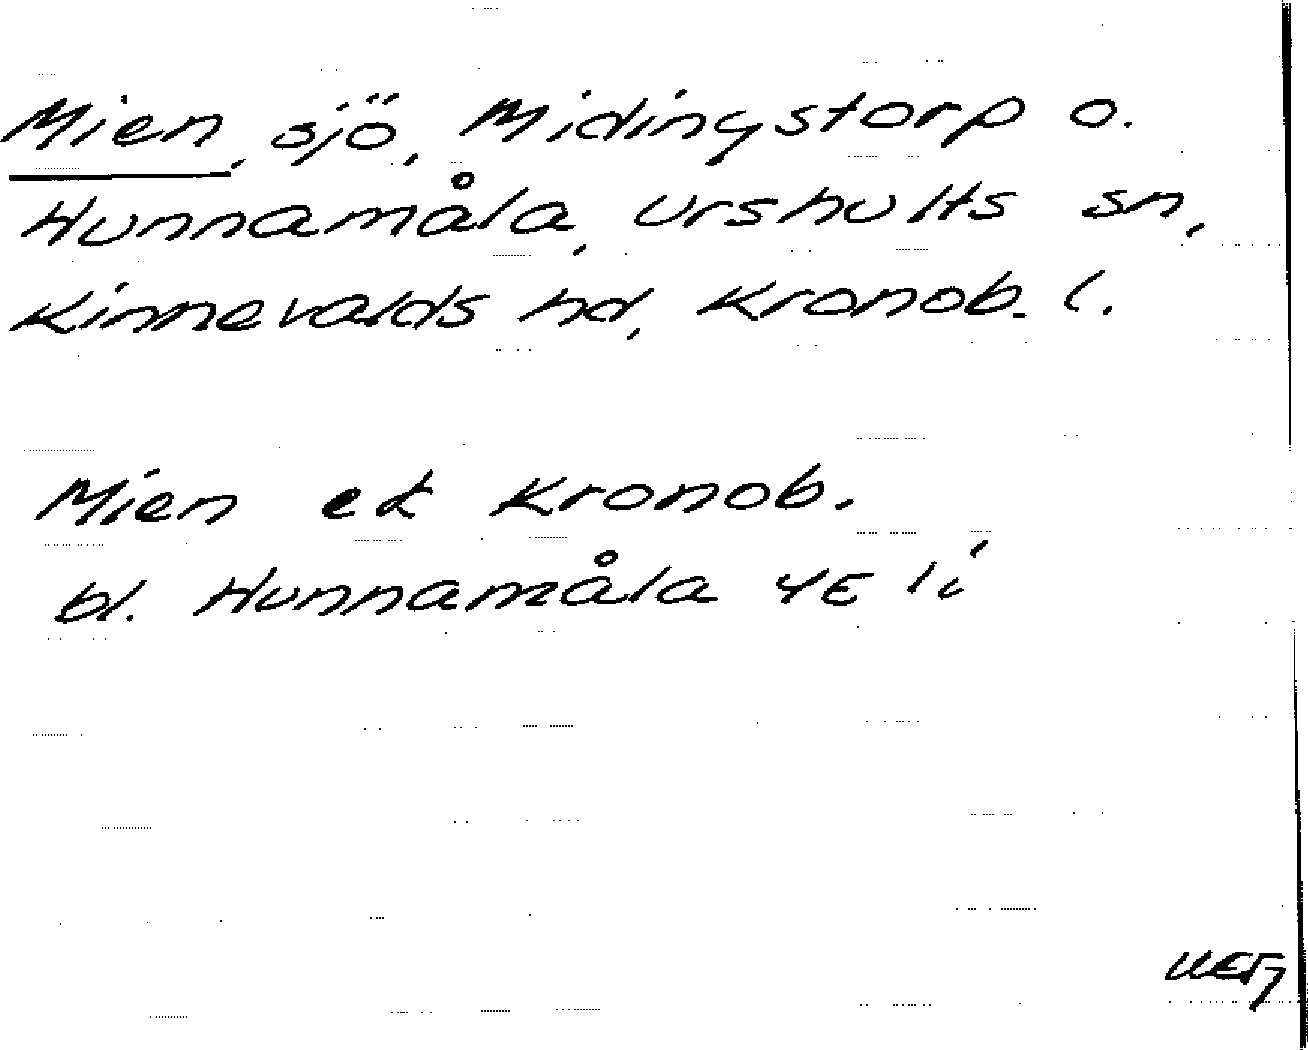 Mien, sjö, Midingstorp o.
Hunnamåla, Urshults sn,
Kinnevalds hd, Kronob. l.
Mien ek Kronob.
bl. Hunnamåla 4E 1i